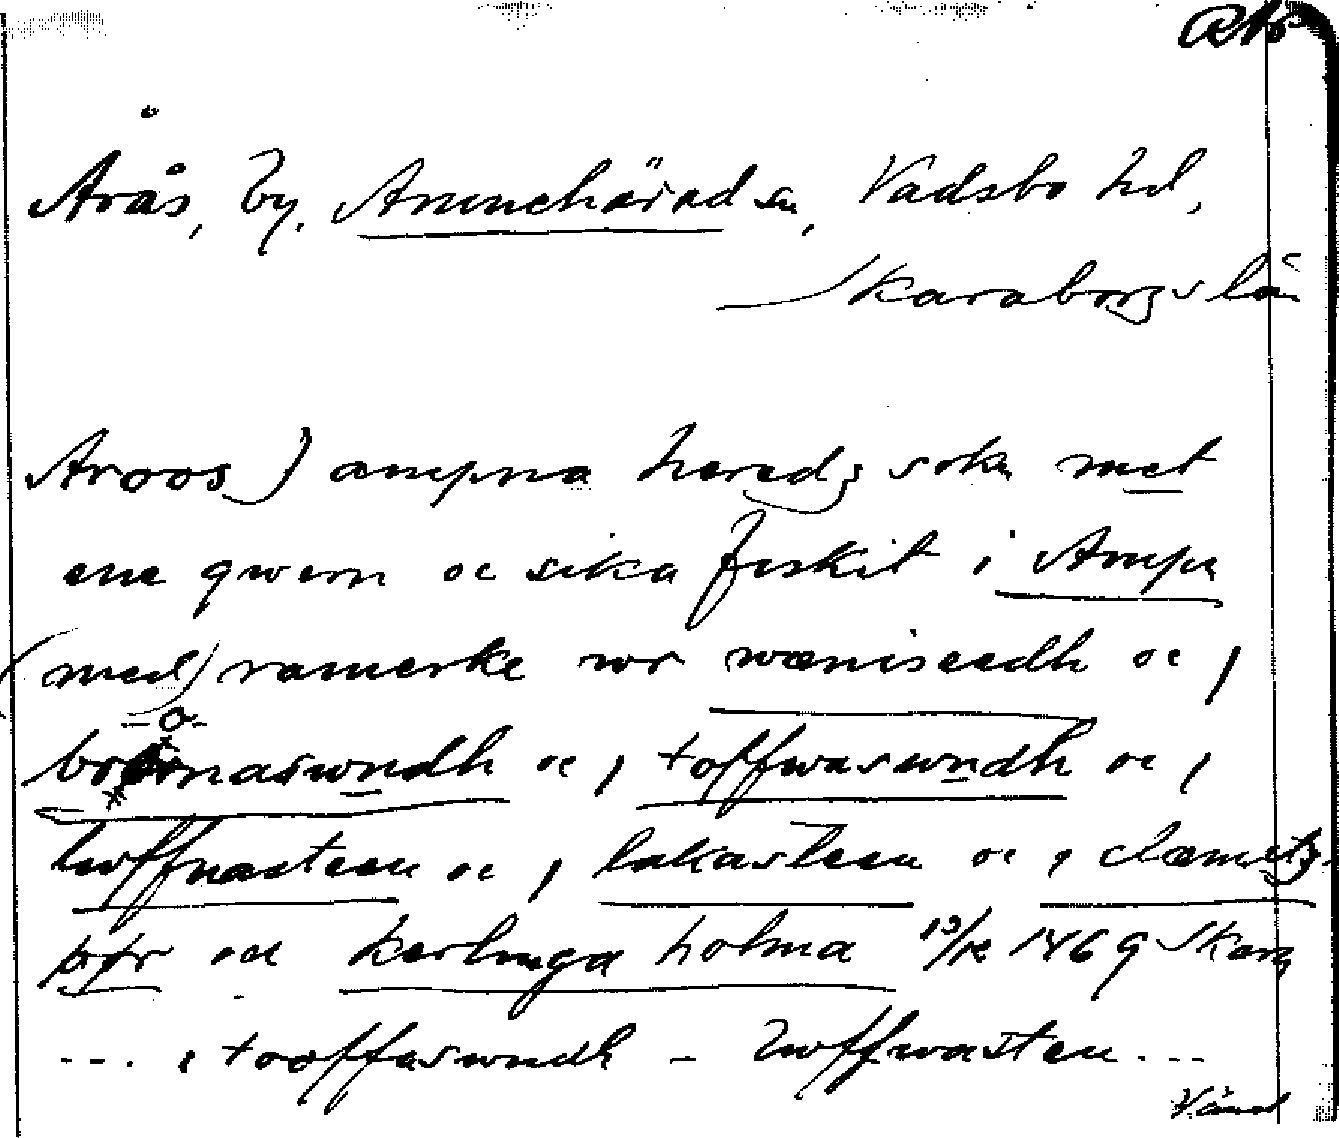 Årås, by, Amnehärad sn, Vadsbo hd,
Skaraborgs län
Aroos) ampna heredz sokn met
ene qwern oc sika feskit i Ampn
(med) ramerke wr wæniseedh oc i
naswndh oc i toffwaswndh oc i
hwffwasteen oc i lakasteen oc i
oc kerlinga holma 1469 Skara
... i tooffaswndh - hwffwasten ...